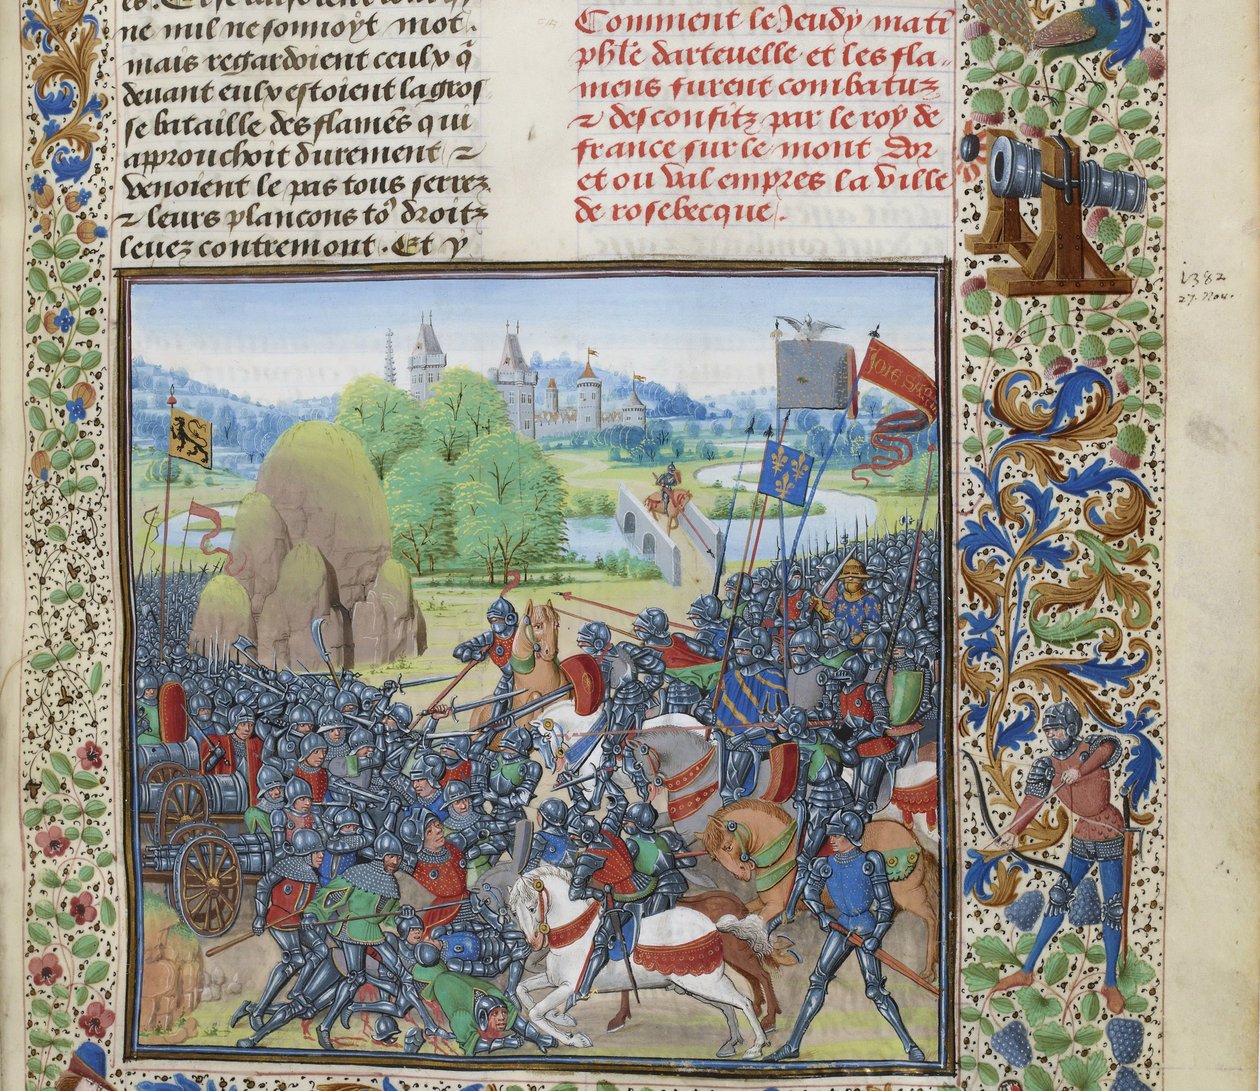 ne mil ne sonnoyt mot.
mais regardoient ceulx q̄
devant eulx estoient la gros
se bataille des flamēs qui
approuchoit durement ⁊
venoient le pas tous serrez
⁊ leurs plancons to⁹ droitz
levez contremont. Et y
Comment le Jeudy mati
phl̄e dartevelle et les fla-
mens furent combatuz
⁊ desconfitz par le roy de
france sur le mont dor
et ou val empres la ville
de rosebecque.
1382
27. Nov.